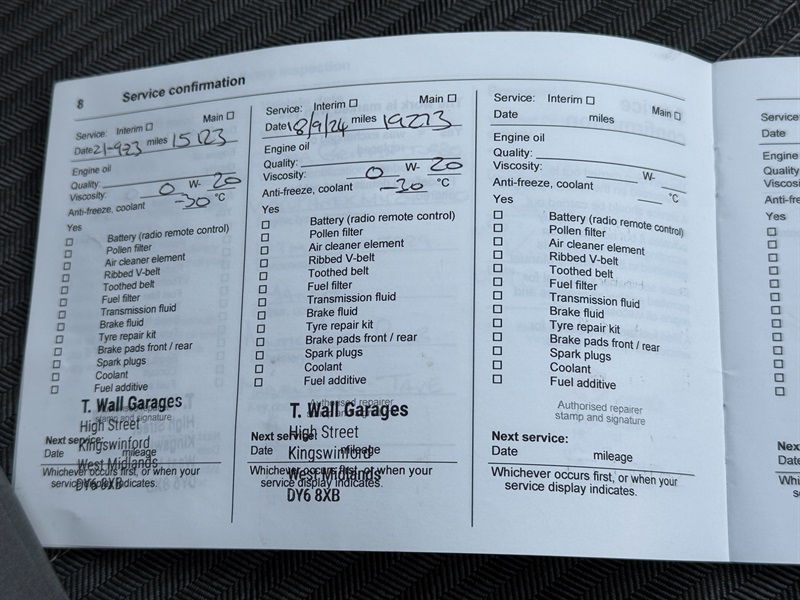 8 Service confirmation
Service: Interim ☐ Main ☐
Date 21-9-23 miles 15123
Engine oil
Quality:
Viscosity: 0 W- 20
Anti-freeze, coolant -30 °C
Yes
☐ Battery (radio remote control)
☐ Pollen filter
☐ Air cleaner element
☐ Ribbed V-belt
☐ Toothed belt
☐ Fuel filter
☐ Transmission fluid
☐ Brake fluid
☐ Tyre repair kit
☐ Brake pads front / rear
☐ Spark plugs
☐ Coolant
☐ Fuel additive
T. Wall Garages
stamp and signature
High Street
Next service:
Kingswinford
Date mileage
West Midlands
Whichever occurs first, or when your
service display indicates.
DY6 8XB
Service: Interim ☐ Main ☐
Date 18/9/24 miles 19273
Engine oil
Quality:
Viscosity: 0 W- 20
Anti-freeze, coolant -30 °C
Yes
☐ Battery (radio remote control)
☐ Pollen filter
☐ Air cleaner element
☐ Ribbed V-belt
☐ Toothed belt
☐ Fuel filter
☐ Transmission fluid
☐ Brake fluid
☐ Tyre repair kit
☐ Brake pads front / rear
☐ Spark plugs
☐ Coolant
☐ Fuel additive
Authorised repairer
T. Wall Garages
High Street
Next service:
Kingswinford
Date mileage
West Midlands
Whichever occurs first, or when your
service display indicates.
DY6 8XB
Service: Interim ☐ Main ☐
Date miles
Engine oil
Quality:
Viscosity: W-
Anti-freeze, coolant °C
Yes
☐ Battery (radio remote control)
☐ Pollen filter
☐ Air cleaner element
☐ Ribbed V-belt
☐ Toothed belt
☐ Fuel filter
☐ Transmission fluid
☐ Brake fluid
☐ Tyre repair kit
☐ Brake pads front / rear
☐ Spark plugs
☐ Coolant
☐ Fuel additive
Authorised repairer
stamp and signature
Next service:
Date mileage
Whichever occurs first, or when your
service display indicates.
Service:
Date
Engine
Quality:
Anti-freeze
Yes